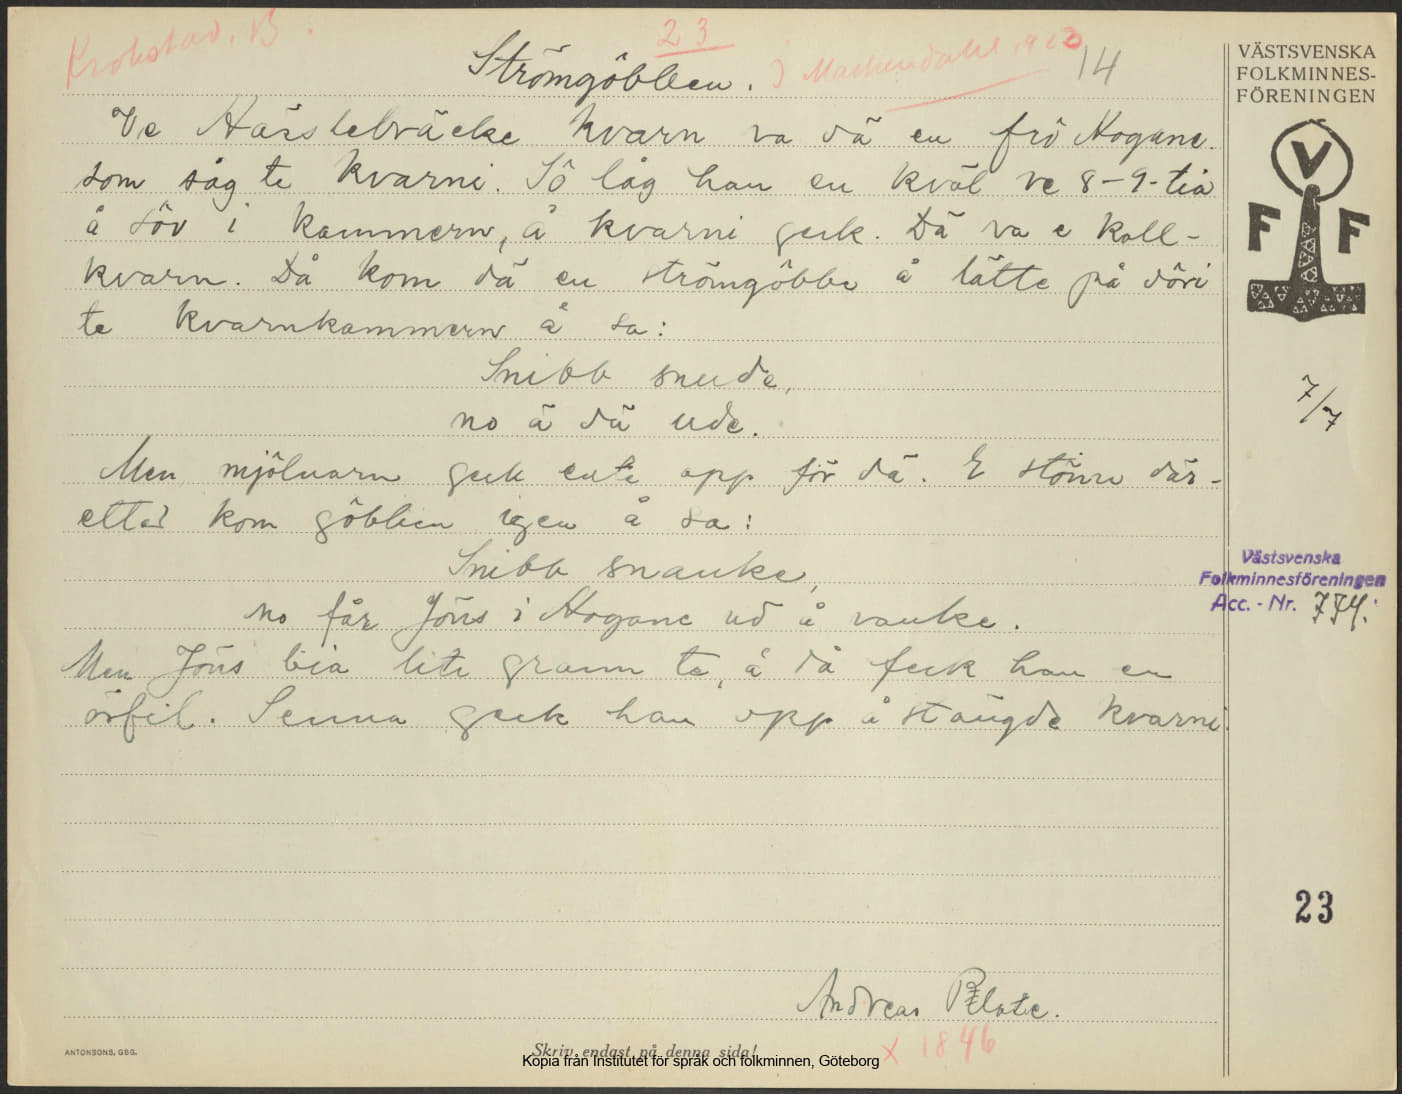 Krokstad, B.
23
Strömgöbben.
14
VÄSTSVENSKA
FOLKMINNES-
FÖRENINGEN
Ve Härslebräcke kvarn va dä en frö Hogane
som såg te kvarni. Sö låg han en kväl ve 8-9-tia
å söv i kammern, å kvarni geck. Dä va e kall-
kvarn. Då kom dä en strömgöbbe å lätte på döri
te kvarnkammern å sa:
Snibb snude,
no ä dä ude.
Men mjölnarn geck ente opp för dä. E stönn där-
etter kom göbben igen å sa:
Snibb snauke,
no får Jöns i Hogane ud å vanke.
Men Jöns bia lite grann te, å då feck han en
örfil. Senna geck han opp å stängde kvarni.
V
F F
7/7
Västsvenska
Folkminnesföreningen
Acc. - Nr. 774.
23
Andreas
x 1846
ANTONSONS, GBG.
Skriv endast på denna sida!
Kopia från Institutet för språk och folkminnen, Göteborg